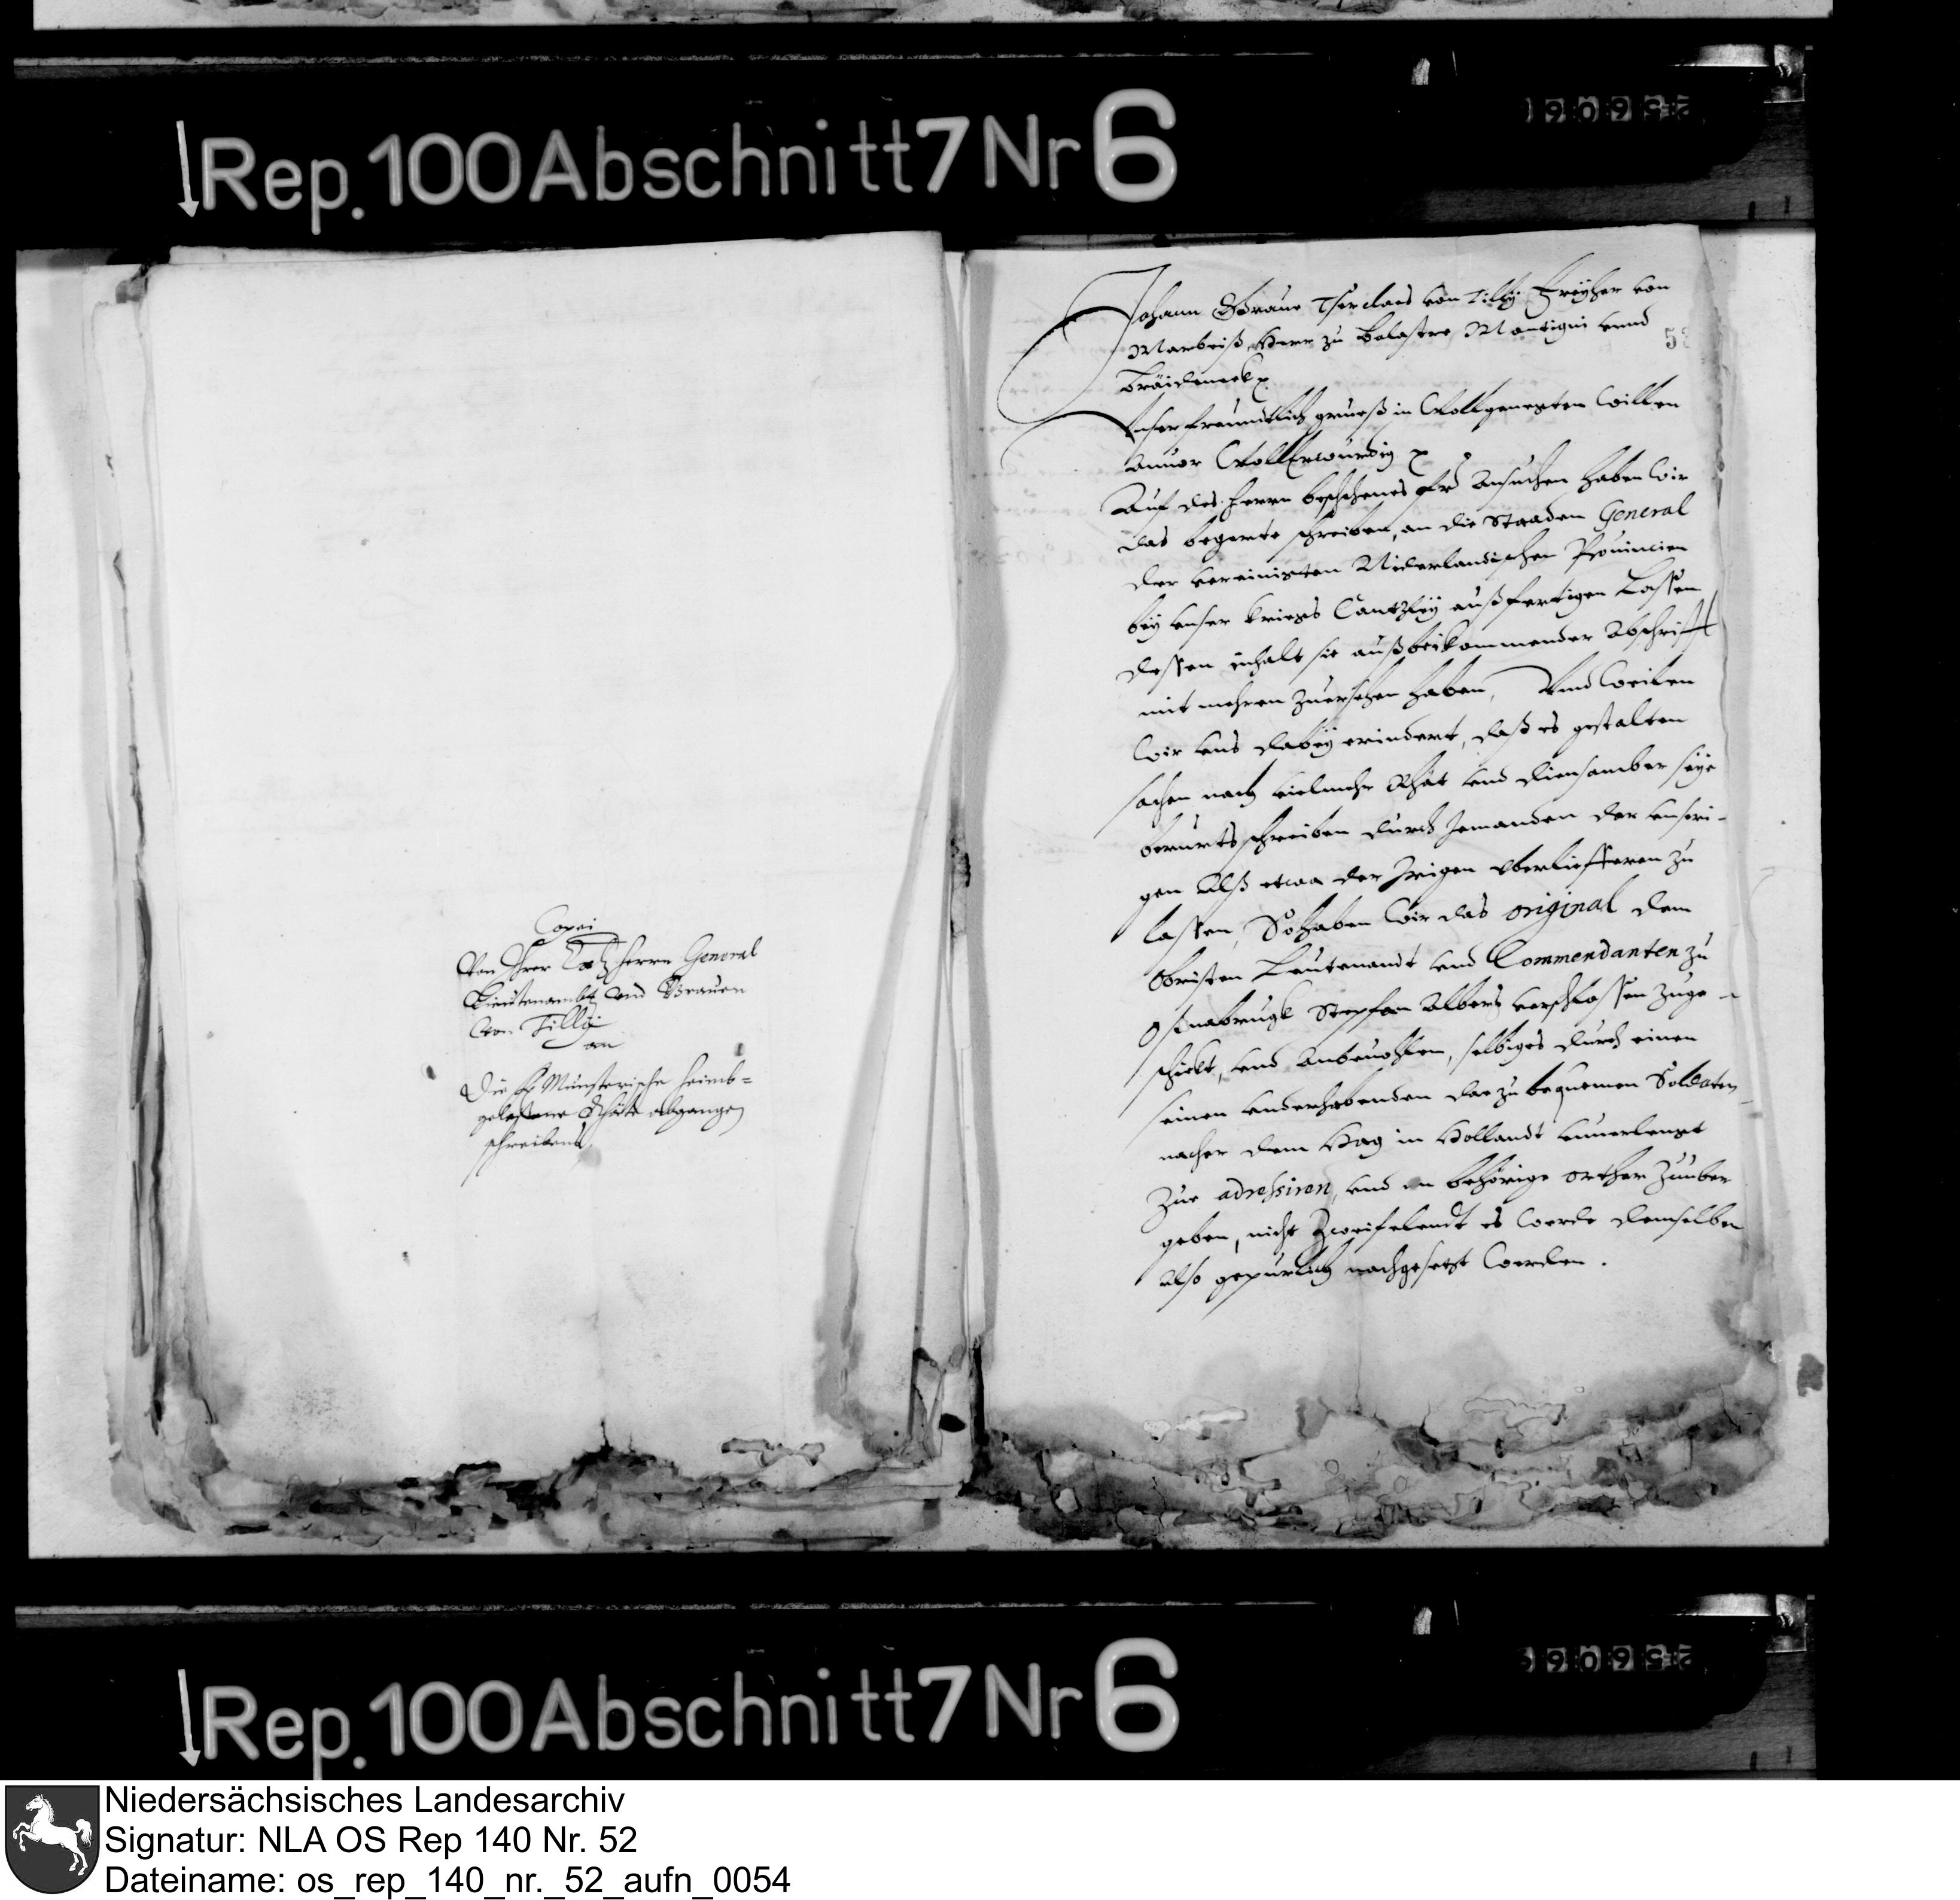 Rep. 100 Abschnitt 7 Nr 6
Copei
Von Ihrer Excell. Herrn General
Lieutenambt vnd Grauen
von Tilly
an
Die F. Munsterische heimb=
gelaßene Rhäte abgangen
schreibens
53
Johann Graue Tserclaes von Tilly Freyher von
Marbeiß, Herr zu Balastre Montigni vnnd
Bräideneck
Vnser freundtlich grueß in Wollgeneigten willen
zuuor Wollerwürdig
Auf des herrn beschehenes Ansuchen haben wir
das begerte schreiben, an die Staaden General
der vereinigten Niderlandischen Prouincien
bey vnser kriegs Cantzley außfertigen Lassen
dessen inhalt sie auß beikommender Abschrifft
mit mehren zuersehen haben, Vnd weilen
wir vns dabey erindert, daß es gestalten
sachen nach vielmehr Rhät vnd diensamber seye
berurts schreiben durch Jemanden der vnseri-
gen Alß etwa der Irigen vberliefferen zu
lassen, So haben wir das original dem
Obristen Leutenandt vnd Commendanten zu
Oßnabrugk Stephan Albers verschlossen zuge-
schickt, vnd anbeuohlen, selbiges durch einen
seinen vnderhabenden darzu bequemen Soldaten
nacher dem Hag in Hollandt vnuerlengt
zue adressiren, vnd an behörige orther zuuber
geben, nicht Zweifelendt es werde demselben
also gepürlich nachgesetzt werden.
Rep. 100 Abschnitt 7 Nr 6
Niedersächsisches Landesarchiv
Signatur: NLA OS Rep 140 Nr. 52
Dateiname: os_rep_140_nr._52_aufn_0054